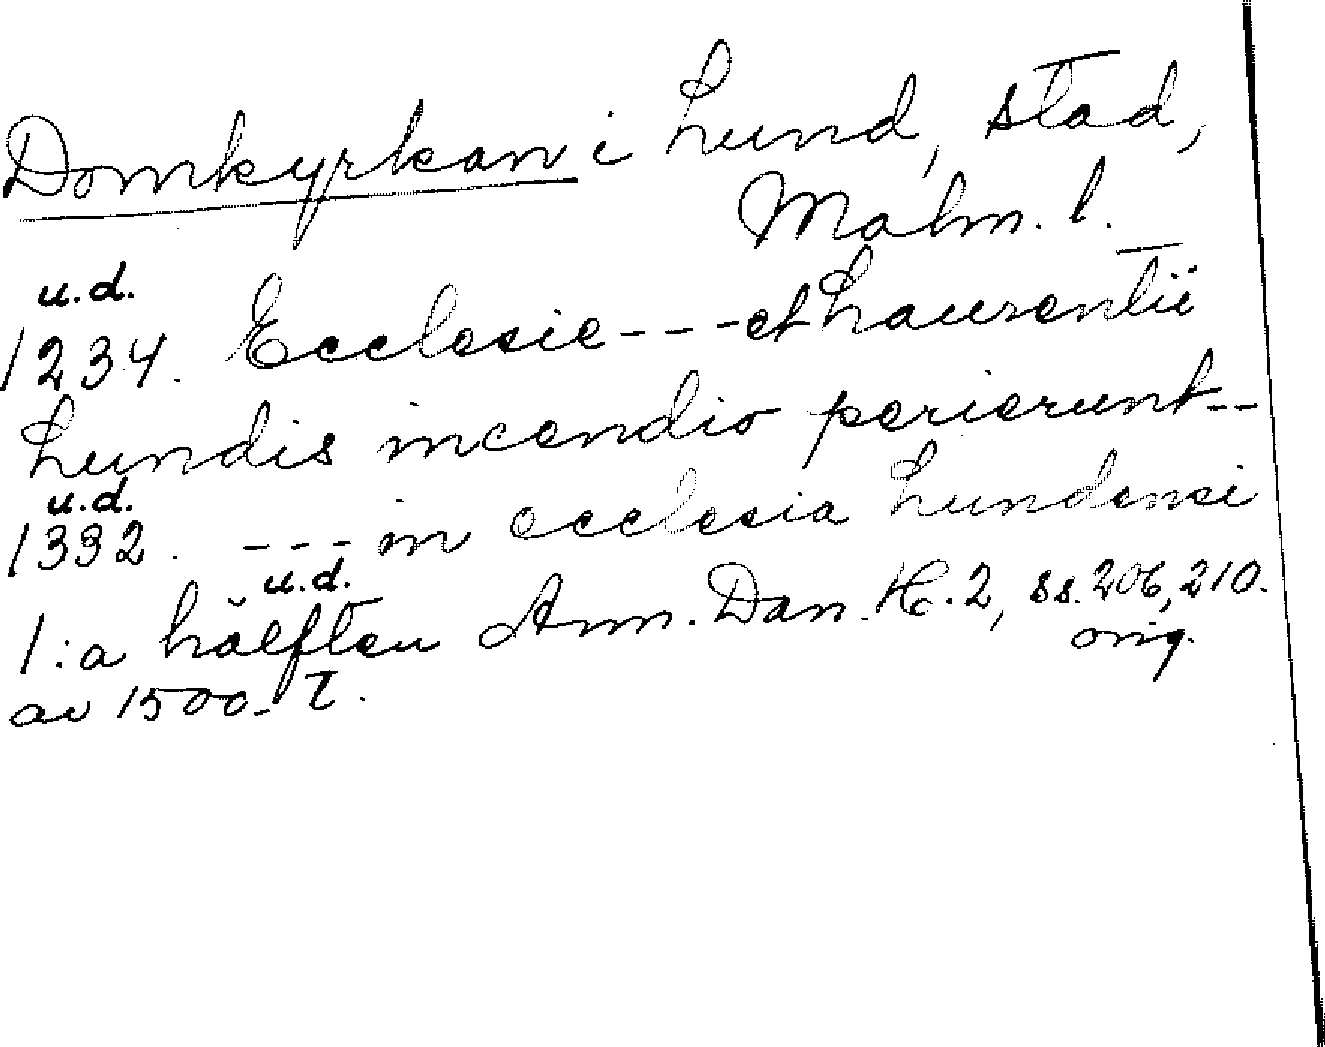 Domkyrkan i Lund, stad,
Malm. l.
u.d.
1234. Ecclesie --- et Laurentii
Lundis incendio perierunt --
u.d.
1332. --- in ecclesia Lundensi
u.d.
1:a hälften Ann. Dan. H. 2, ss. 206, 210.
av 1500-t. orig.